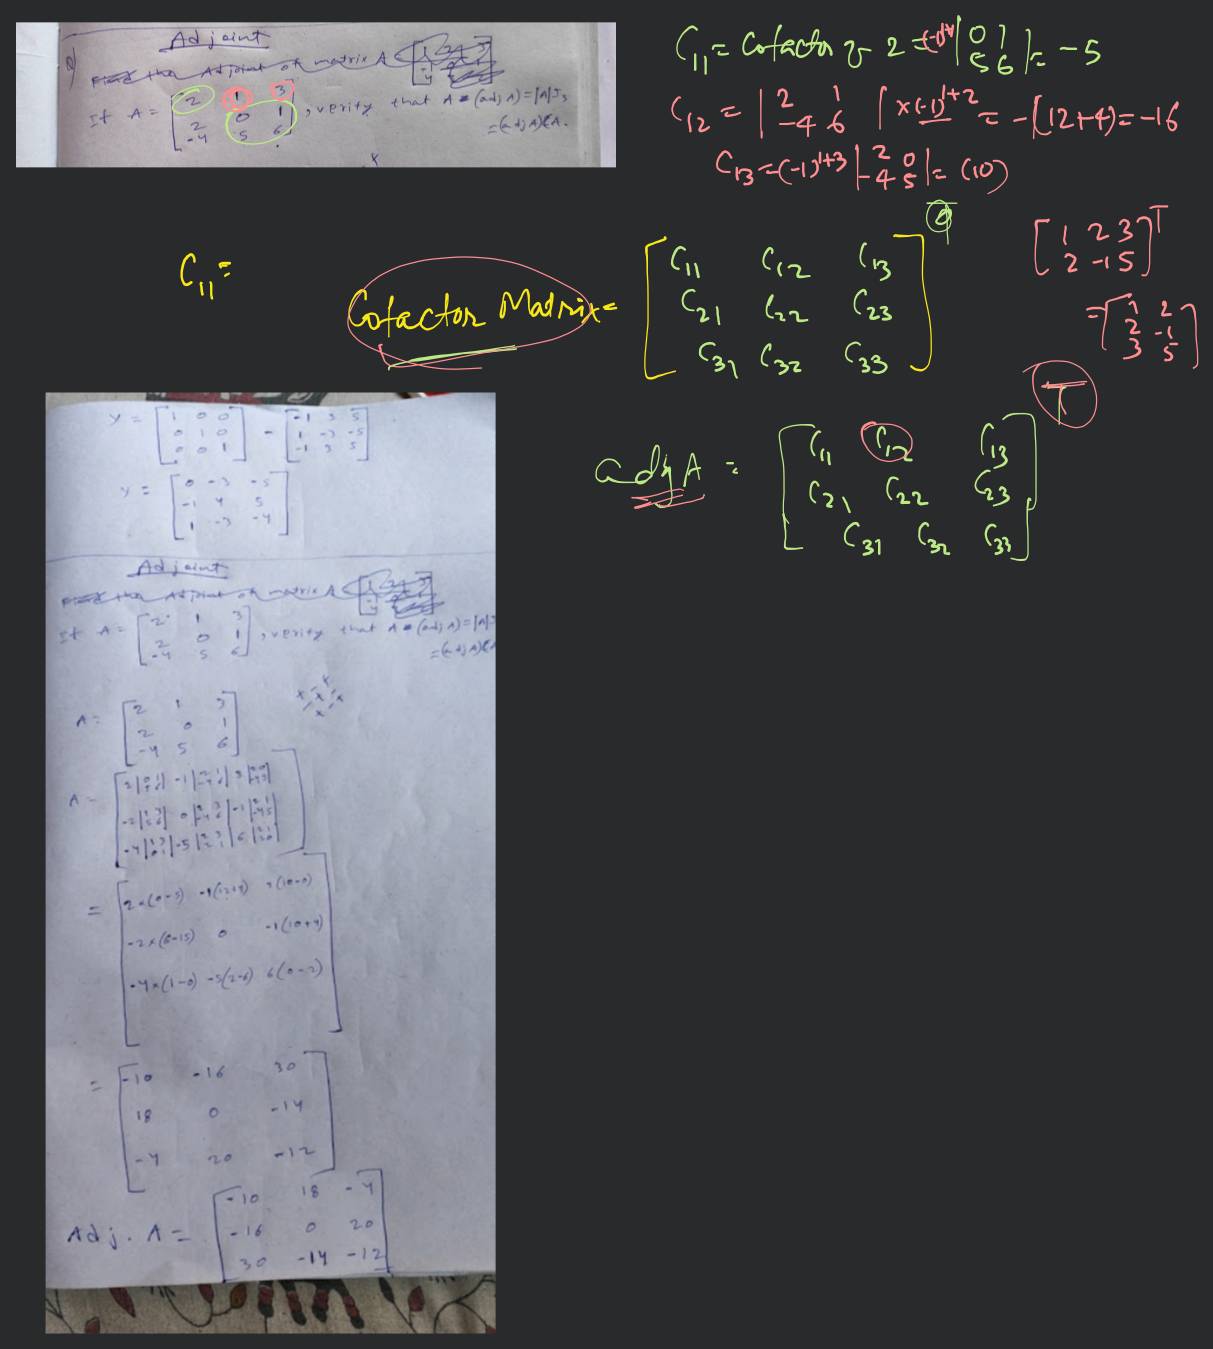 Adjoint
the Adjoint of matrix A
If A = [2 1 3
2 0 1
-4 5 6], verify that A (adj A) = |A|I3
= (adj A)(A.
C11 = Cofactor of 2 = |0 1
5 6| = -5
C12 = |2 1
-4 6| x(-1)^1+2 = -(12+4) = -16
C13 = (-1)^1+3 |2 0
-4 5| = (10)
C11 =
Cofactor Matrix =
[C11 C12 C13
C21 C22 C23
C31 C32 C33]
[1 2 3
2 -1 5]^T
= [1 2
2 -1
3 5]
adj A = [C11 C12 C13
C21 C22 C23
C31 C32 C33]^T
y = [1 0 0
0 1 0
0 0 1] - [-1 3 5
1 -3 -5
-1 3 5]
y = [0 -3 -5
-1 4 5
1 -3 -4]
Adjoint
the Adjoint of matrix A
If A = [2 1 3
2 0 1
-4 5 6], verify that A (adj A) = |A|
= (adj A)(A
A = [2 1 3
2 0 1
-4 5 6]
A =
= [2×(0-5) -1(12+4) 3(10-0)
-2×(6-15) 0 -1(10+4)
-4×(1-0) -5(2-6) 6(0-2)]
= [-10 -16 30
18 0 -14
-4 20 -12]
Adj. A = [-10 18 -4
-16 0 20
30 -14 -12]